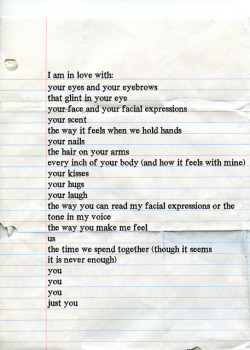 I am in love with:
your eyes and your eyebrows
that glint in your eye
your face and your facial expressions
your scent
the way it feels when we hold hands
your nails
the hair on your arms
every inch of your body (and how it feels with mine)
your kisses
your hugs
your laugh
the way you can read my facial expressions or the
tone in my voice
the way you make me feel
us
the time we spend together (though it seems
it is never enough)
you
you
you
just you